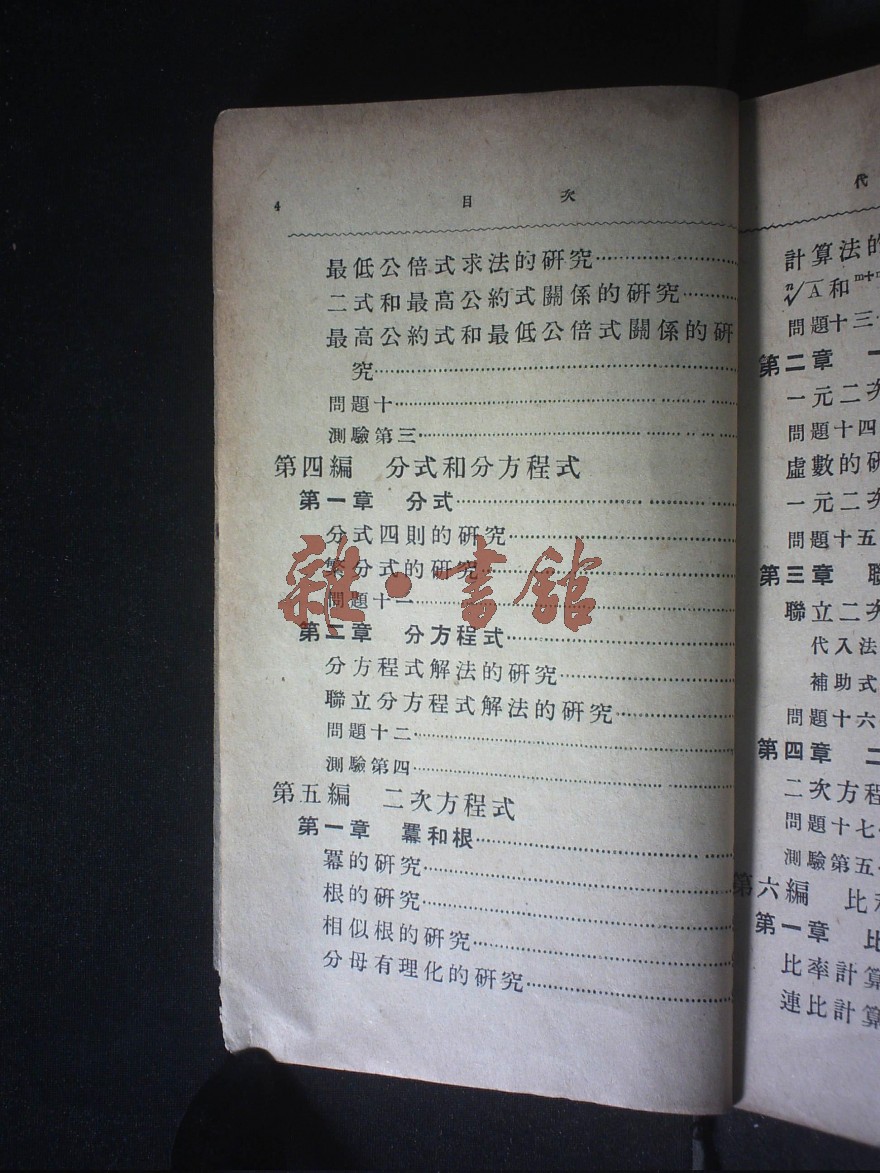 4 目 次
最低公倍式求法的研究
二式和最高公約式關係的研究
最高公約式和最低公倍式關係的研
究
問題十
測驗第三
第四編 分式和分方程式
第一章 分式
分式四則的研究
繁分式的研究
問題十一
雜·書館
第二章 分方程式
分方程式解法的研究
聯立分方程式解法的研究
問題十二
測驗第四
第五編 二次方程式
第一章 羃和根
羃的研究
根的研究
相似根的研究
分母有理化的研究
代
計算法的
問題十三
第二章 一
一元二次
問題十四
虛數的研
一元二次
問題十五
第三章 聯
聯立二次
代入法
補助式
問題十六
第四章 二
二次方程
問題十七
測驗第五
第六編 比和
第一章 比
比率計算
連比計算